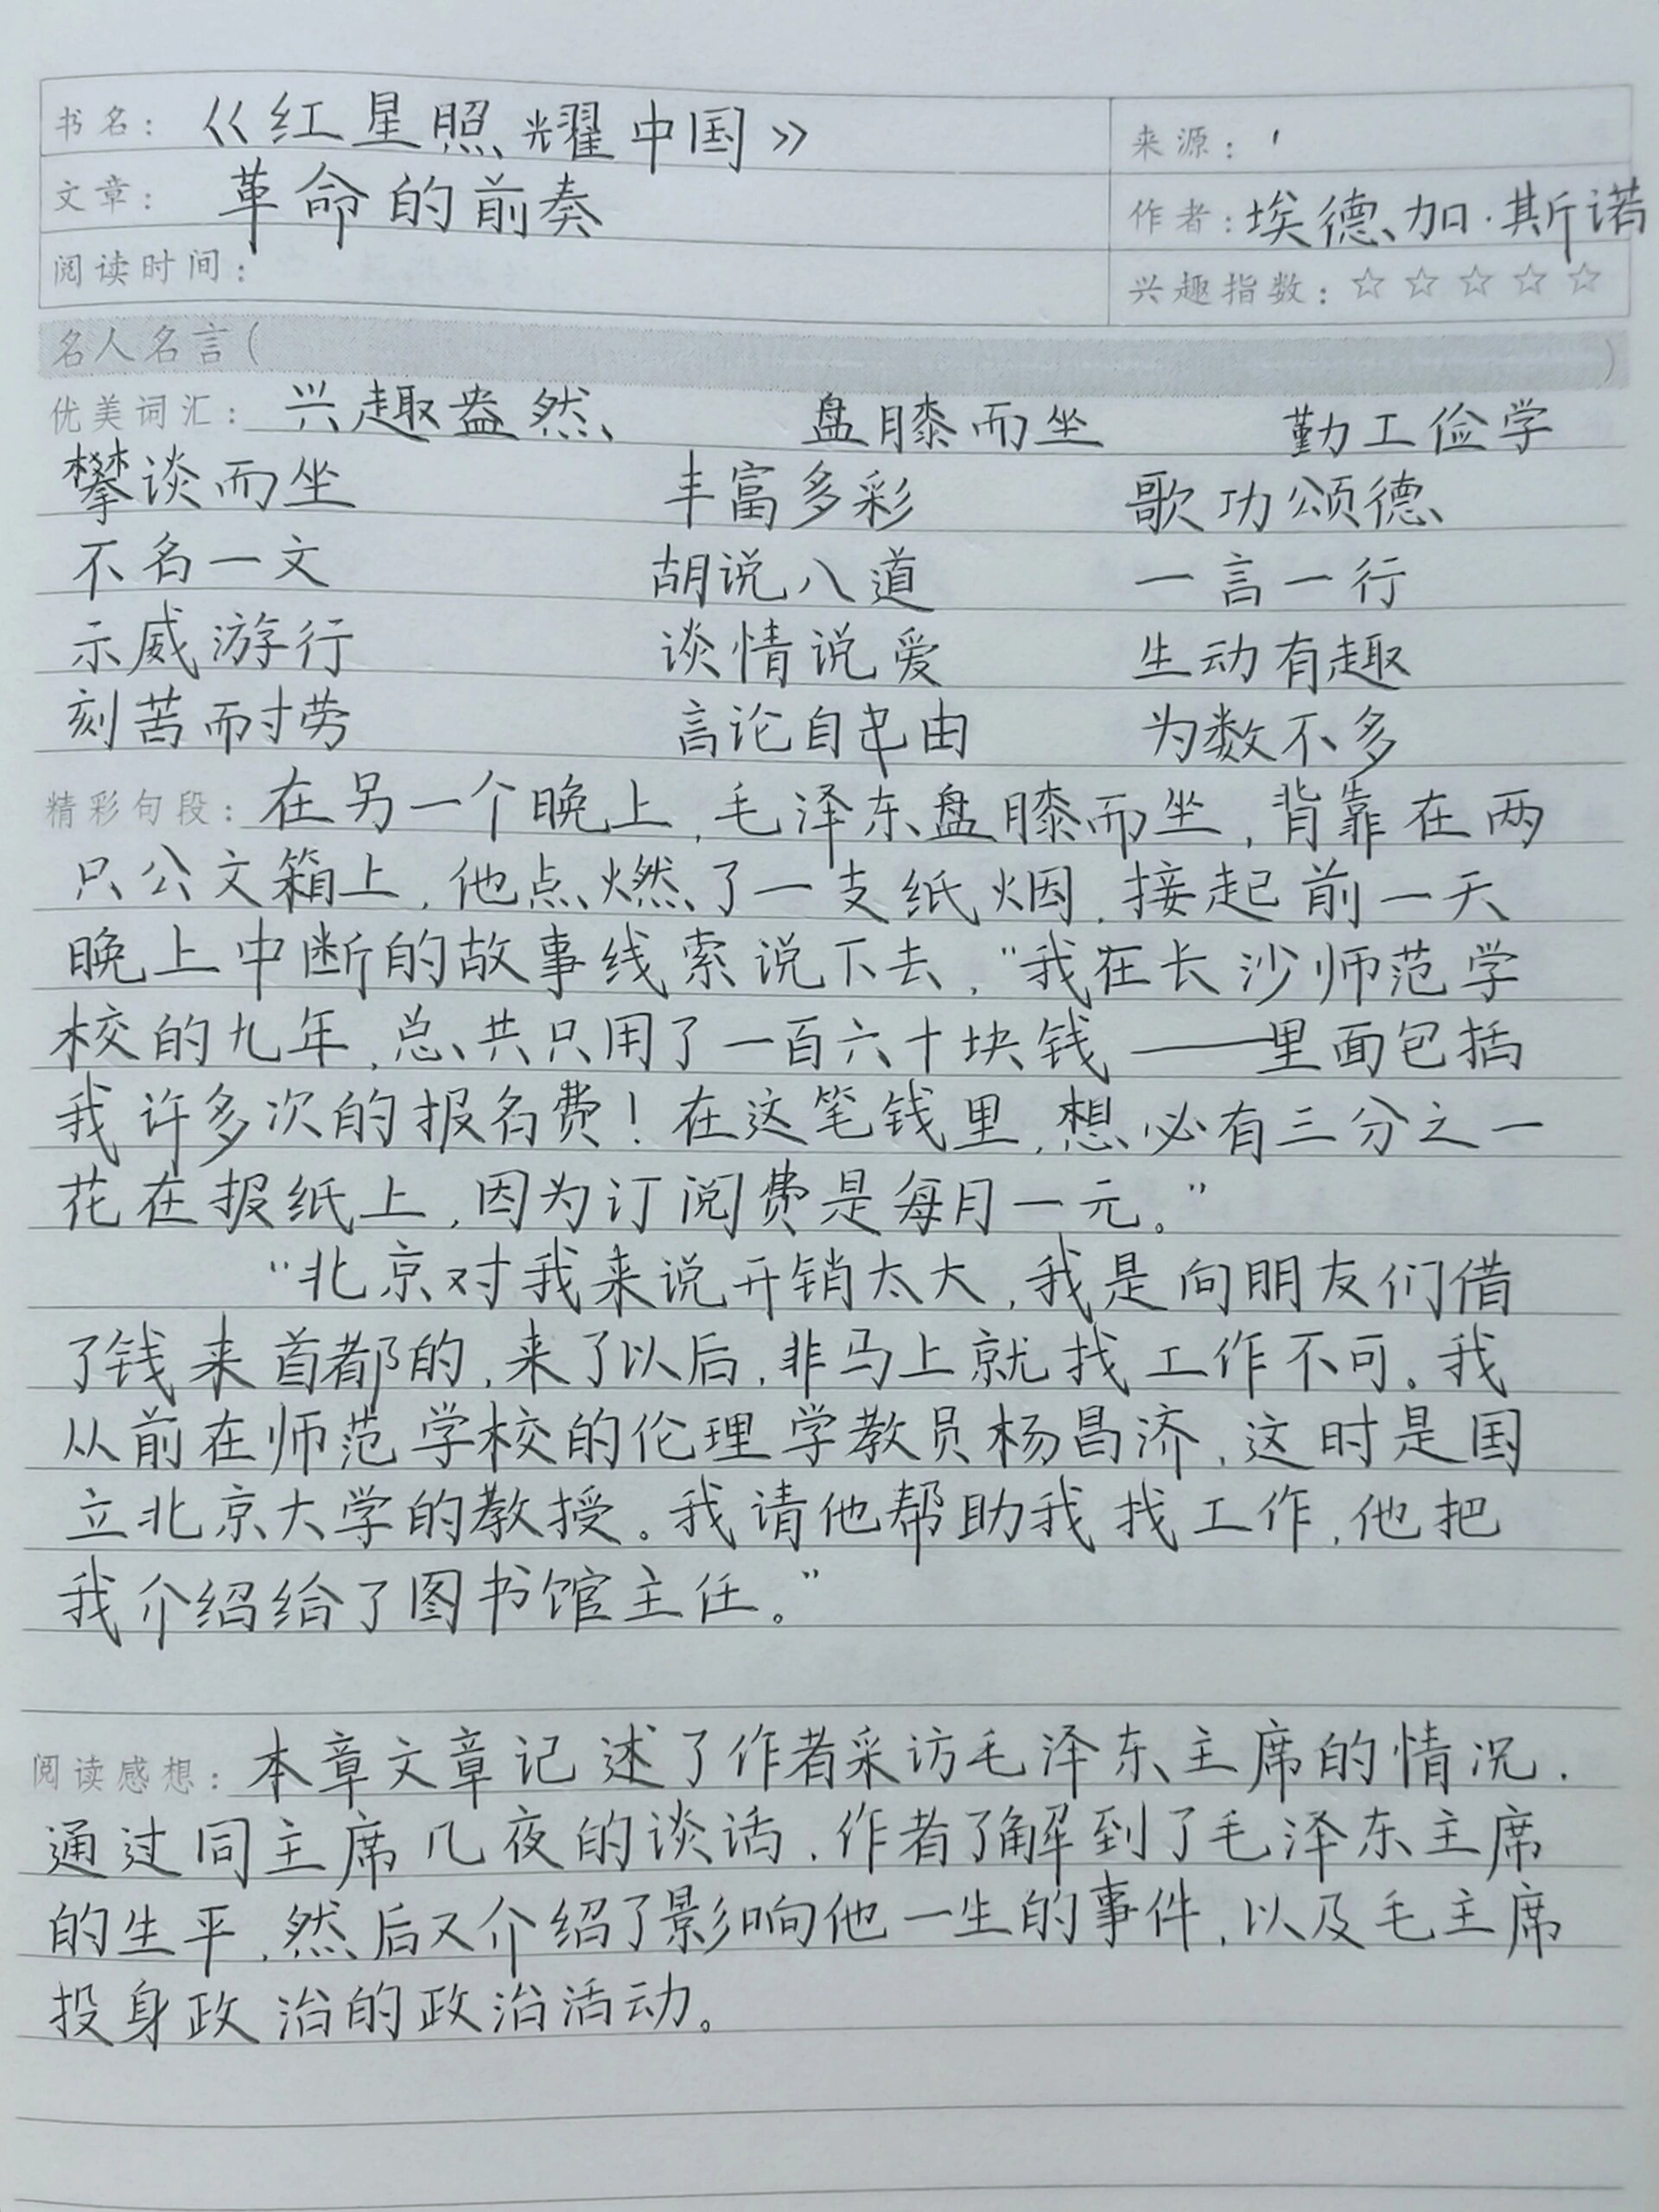 书名：《红星照耀中国》 来源：
文章：革命的前奏 作者：埃德加·斯诺
阅读时间： 兴趣指数：☆☆☆☆☆
名人名言（ ）
优美词汇：兴趣盎然 盘膝而坐 勤工俭学
攀谈而坐 丰富多彩 歌功颂德
不名一文 胡说八道 一言一行
示威游行 谈情说爱 生动有趣
刻苦耐劳 言论自由 为数不多
精彩句段：在另一个晚上，毛泽东盘膝而坐，背靠在两
只公文箱上，他点燃了一支纸烟，接起前一天
晚上中断的故事线索说下去，“我在长沙师范学
校的九年，总共只用了一百六十块钱——里面包括
我许多次的报名费！在这笔钱里，想必有三分之一
花在报纸上，因为订阅费是每月一元。”
“北京对我来说开销太大，我是向朋友们借
了钱来首都的，来了以后，非马上就找工作不可。我
从前在师范学校的伦理学教员杨昌济，这时是国
立北京大学的教授。我请他帮助我找工作，他把
我介绍给了图书馆主任。”
阅读感想：本章文章记述了作者采访毛泽东主席的情况．
通过同主席几夜的谈话，作者了解到了毛泽东主席
的生平，然后又介绍了影响他一生的事件，以及毛主席
投身政治的政治活动。